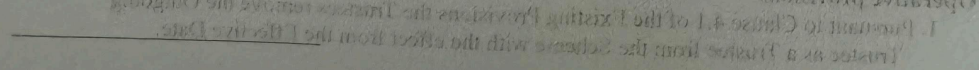 1. Pursuant to Clause 4.1 of the Existing Provisions the Trustees remove the Outgoing
Trustee as a Trustee from the Scheme with the effect from the Effective Date.